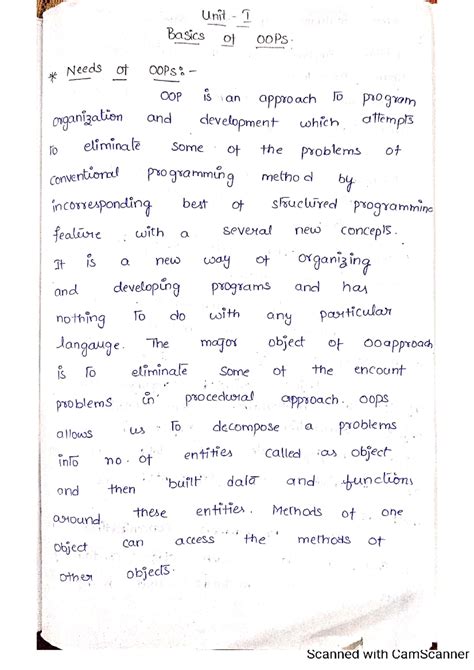 Unit - I
Basics of OOPs.
* Needs of OOPs:-
OOP is an approach to program
organization and development which attempts
to eliminate some of the problems of
conventional programming method by
incorresponding best of structured programming
feature with a several new concepts.
It is a new way of organizing
and developing programs and has
nothing to do with any particular
langauge. The major object of OO approach
is to eliminate some of the encount
problems in procedural approach. OOPs
allows us to decompose a problems
into no. of entities called as object
and then 'built' data and functions
around these entities. Methods of one
object can access the methods of
other objects.
Scanned with CamScanner